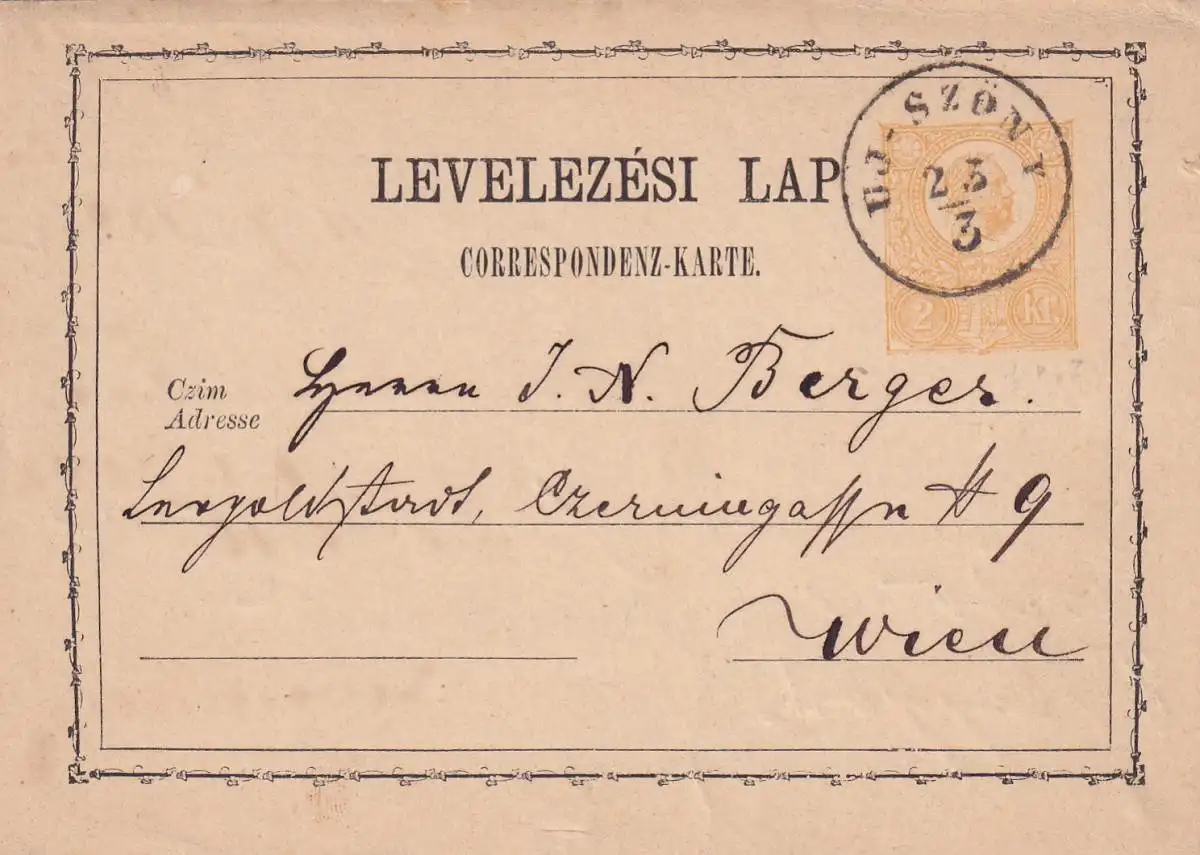 LEVELEZÉSI LAP
UJ-SZÖNY
23/3
CORRESPONDENZ-KARTE.
2 kr.
Czim
Adresse
Herrn J. N. Berger.
Leopoldstadt, Czerningasse # 9
Wien